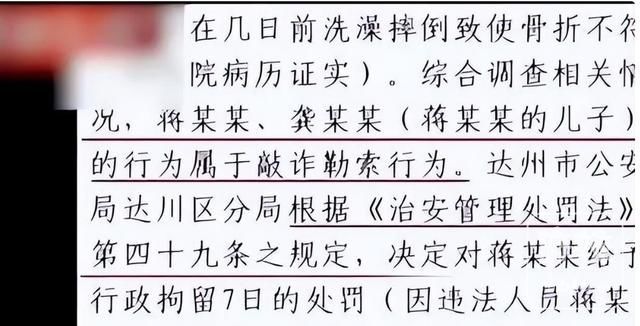 在几日前洗澡摔倒致使骨折不符
院病历证实）。综合调查相关情
况，蒋某某、龚某某（蒋某某的儿子）
的行为属于敲诈勒索行为。达州市公安
局达川区分局根据《治安管理处罚法》
第四十九条之规定，决定对蒋某某给予
行政拘留7日的处罚（因违法人员蒋某